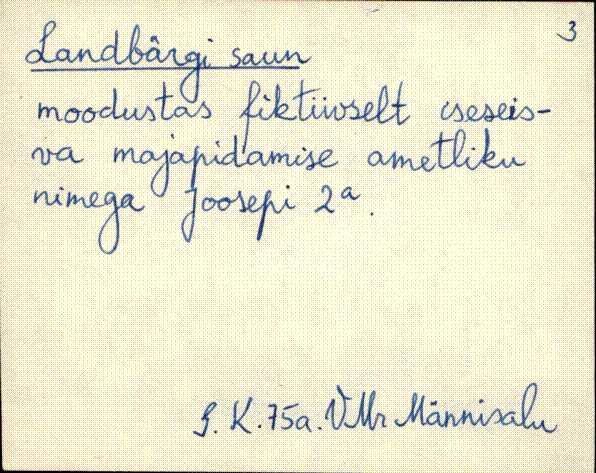 3
Landbârgi saun
moodustas fiktiivselt iseseis-
va majapidamise ametliku
nimega Joosepi 2ª.
J. K. 75a. VMr Männisalu